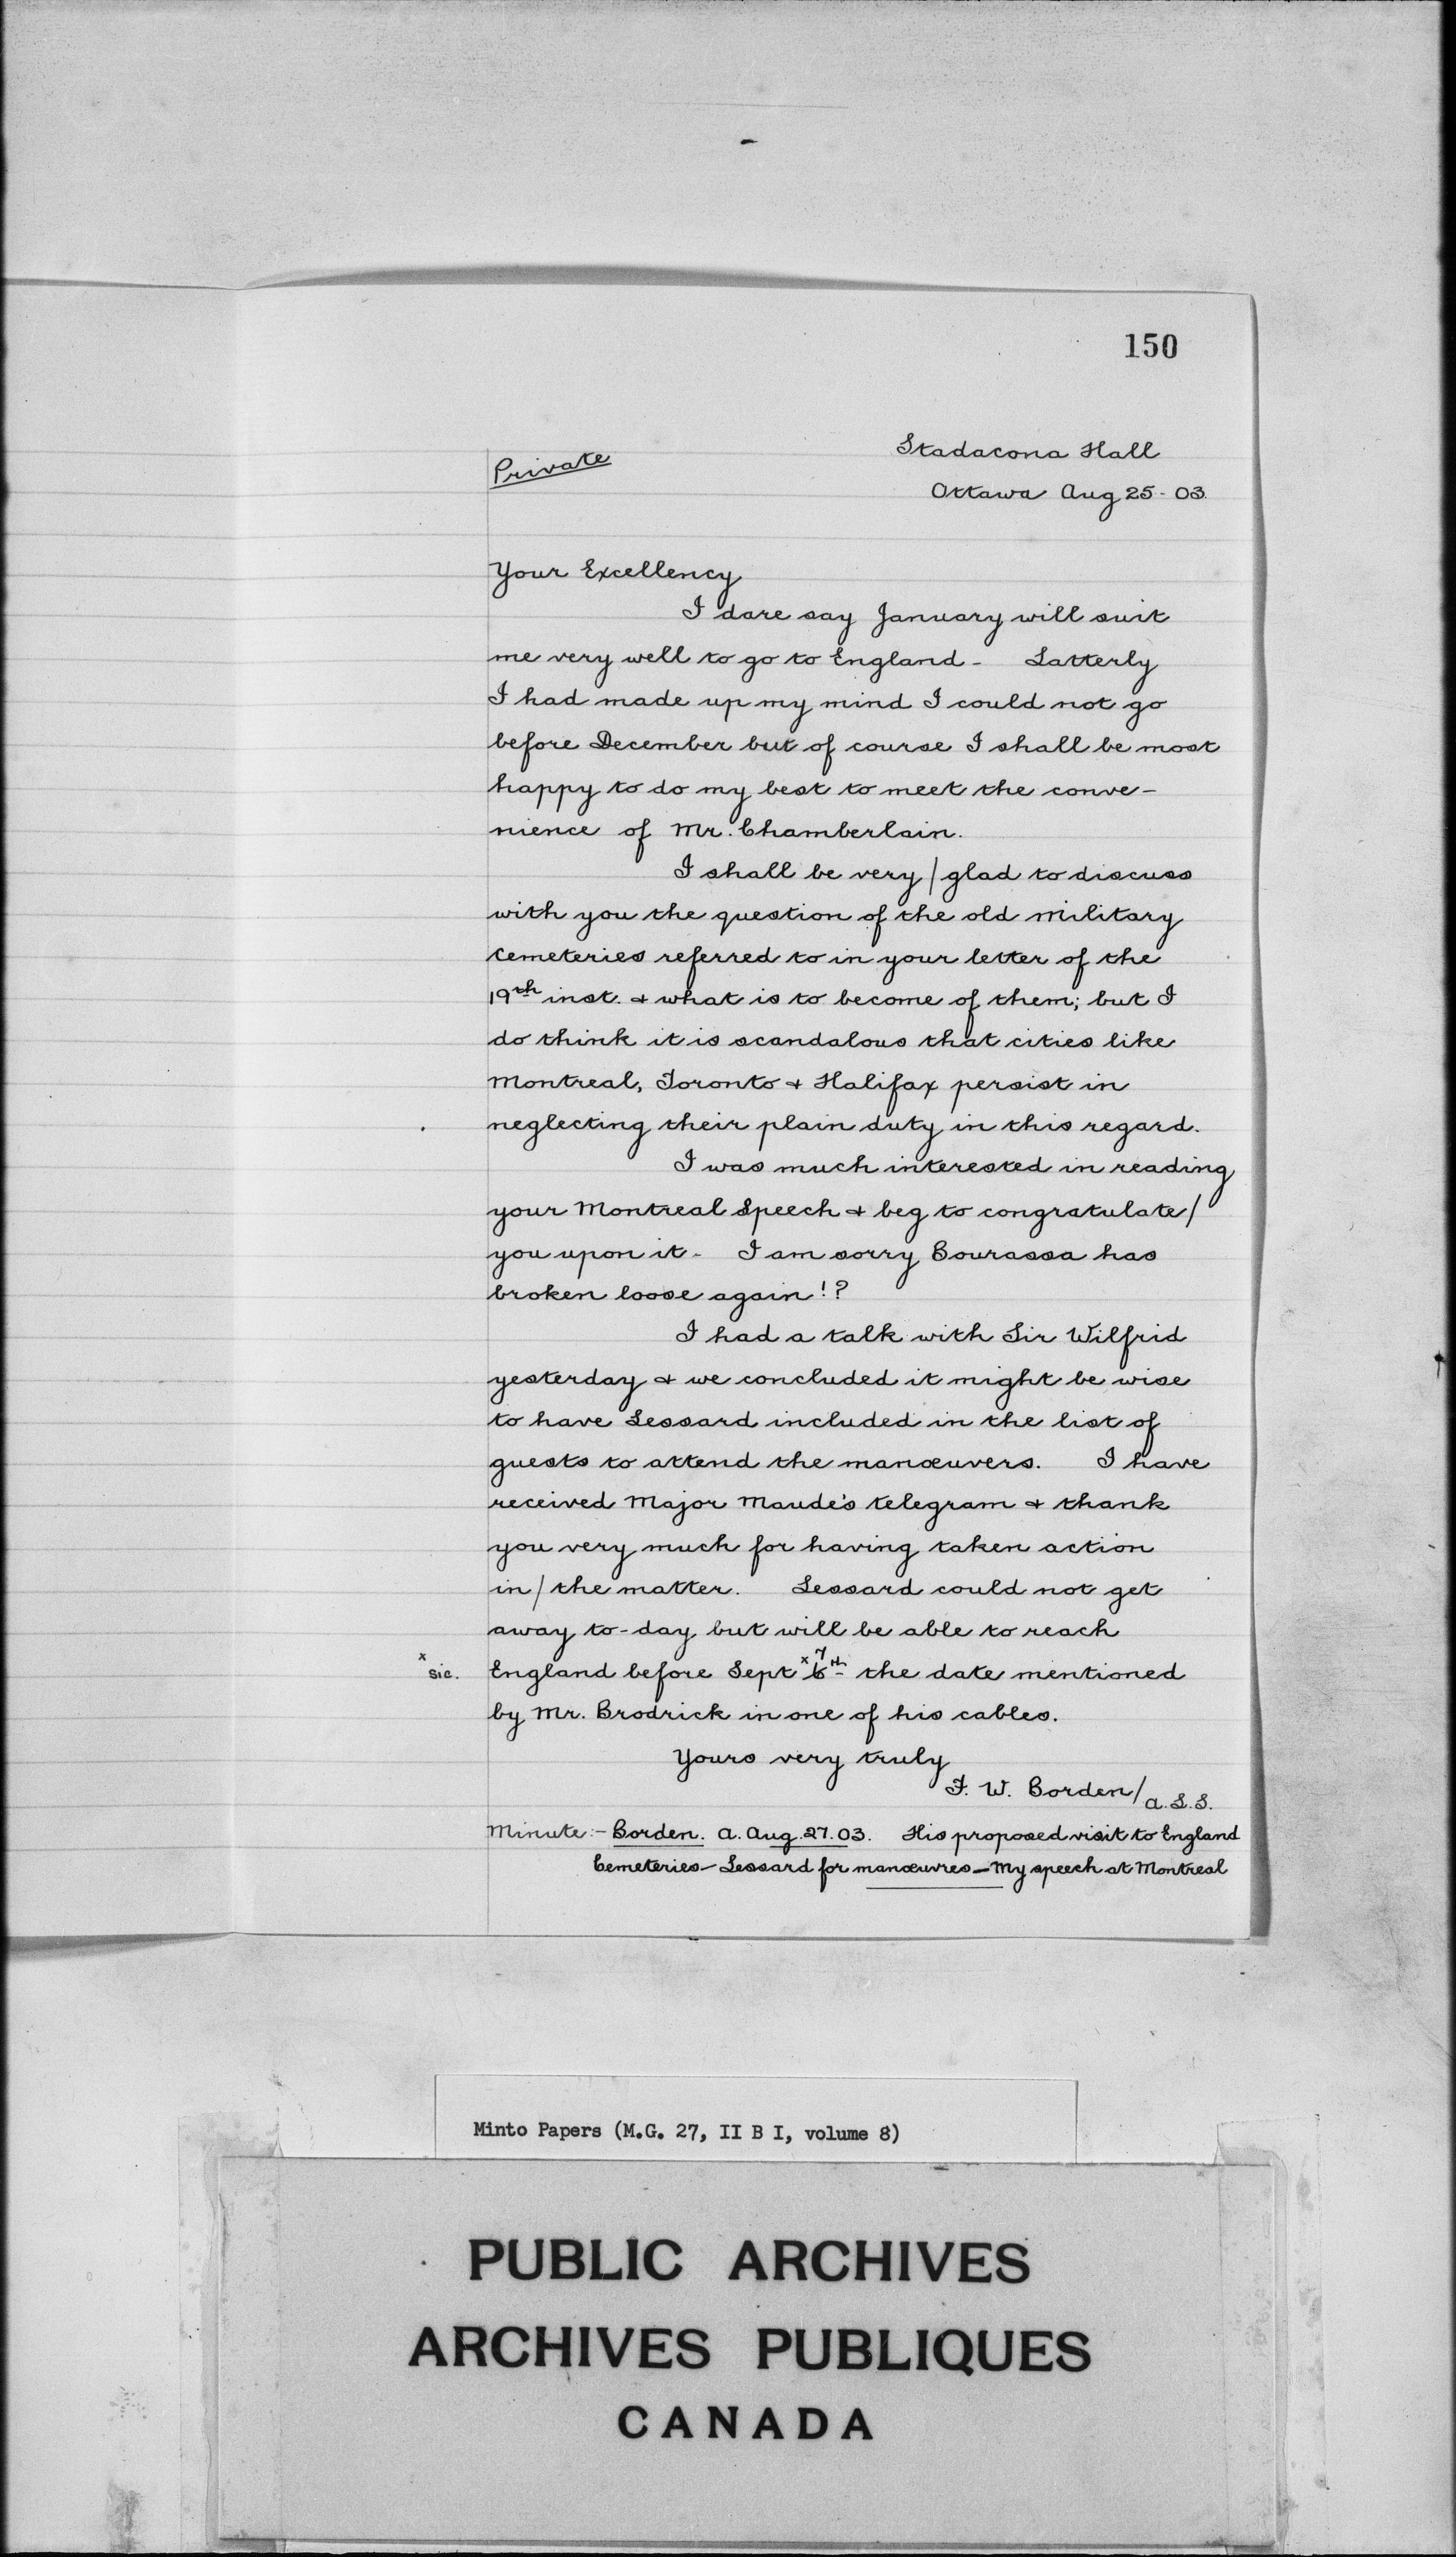 150
Stadacona Hall
Private
Ottawa Aug 25-03.
Your Excellency
I dare say January will suit
me very well to go to England - Latterly
I had made up my mind I could not go
before December but of course I shall be most
happy to do my best to meet the conve-
nience of Mr. Chamberlain.
I shall be very / glad to discuss
with you the question of the old Military
Cemeteries referred to in your letter of the
19th inst. & what is to become of them; but I
do think it is scandalous that cities like
Montreal, Toronto & Halifax persist in
neglecting their plain duty in this regard.
I was much interested in reading
your Montreal Speech & beg to congratulate /
you upon it - I am sorry Bourassa has
broken loose again!?
I had a talk with Sir Wilfrid
yesterday & we concluded it might be wise
to have Lessard included in the list of
guests to attend the manœuvers. I have
received Major Maude's telegram & thank
you very much for having taken action
in / the matter. Lessard could not get
away to-day but will be able to reach
x sic. England before Sept x 7 6th the date mentioned
by Mr. Brodrick in one of his cables.
Yours very truly
F. W. Borden / A.L.S.
Minute:- Borden. A. Aug. 27. 03. His proposed visit to England
Cemeteries - Lessard for manœuvres - My speech at Montreal
Minto Papers (M.G. 27, II B I, volume 8)
PUBLIC ARCHIVES
ARCHIVES PUBLIQUES
CANADA